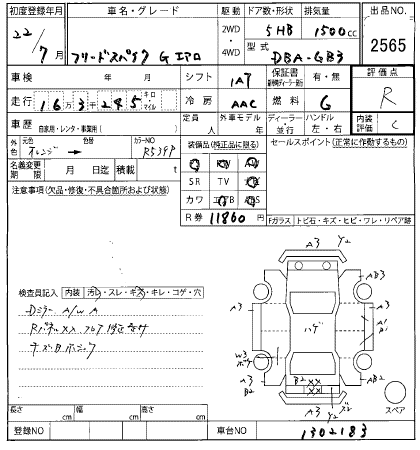 初度登録年月 車名・グレード 駆動 ドア数・形状 排気量 出品NO.
22/7月 フリードスパイク G エアロ 2WD・4WD 5HB 1500cc 2565
型式 DBA-GB3
車検 年 月 シフト 1AT 保証書 有・無 評価点
走行 16万3千245キロ・マイル 冷房 AAC 燃料 G R
車歴 自家用・レンタ・事業用( ) 定員 人 外車モデル ディーラー・並行 ハンドル 左・右 内装評価 C
外色 元色 オレンジ → 色替 カラーNO R539P 装備品(純正品に限る) セールスポイント(正常に作動するもの)
名義変更期限 月 日迄 積載 t
注意事項(欠品・修復・不具合箇所および状態) SR TV
カワ エアB ABS
R券 11860円 Fガラス トビ石・キズ・ヒビ・ワレ・リペア跡
A3 Y2
AB3
A3 A3
検査員記入 内装 汚レ・スレ・キズ・キレ・コゲ・穴
Dミラー A/W A
RパネルXX フロア修正歴有
ハゲ
A1
W3
A3 B2 B2 XX XX AB2
A3 Y2
スペア
長さ cm 幅 cm 高さ cm
登録NO 車台NO 1302183